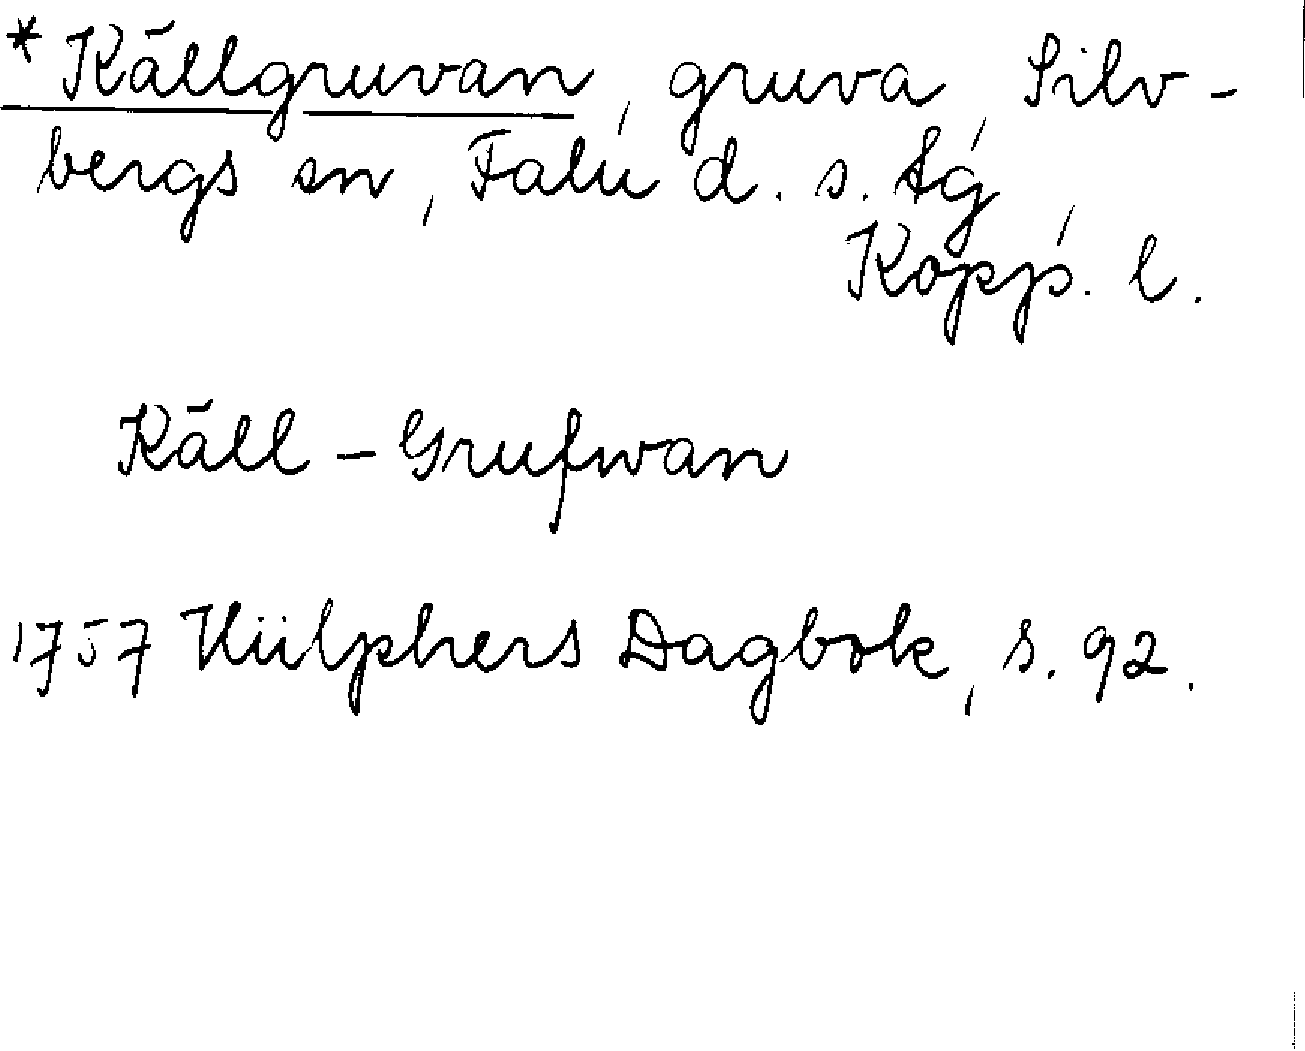 *Källgruvan, gruva, Silv-
bergs sn, Falu d. s. tg,
Kopp. l.
Käll-Grufwan
1757 Hülphers Dagbok, s. 92.